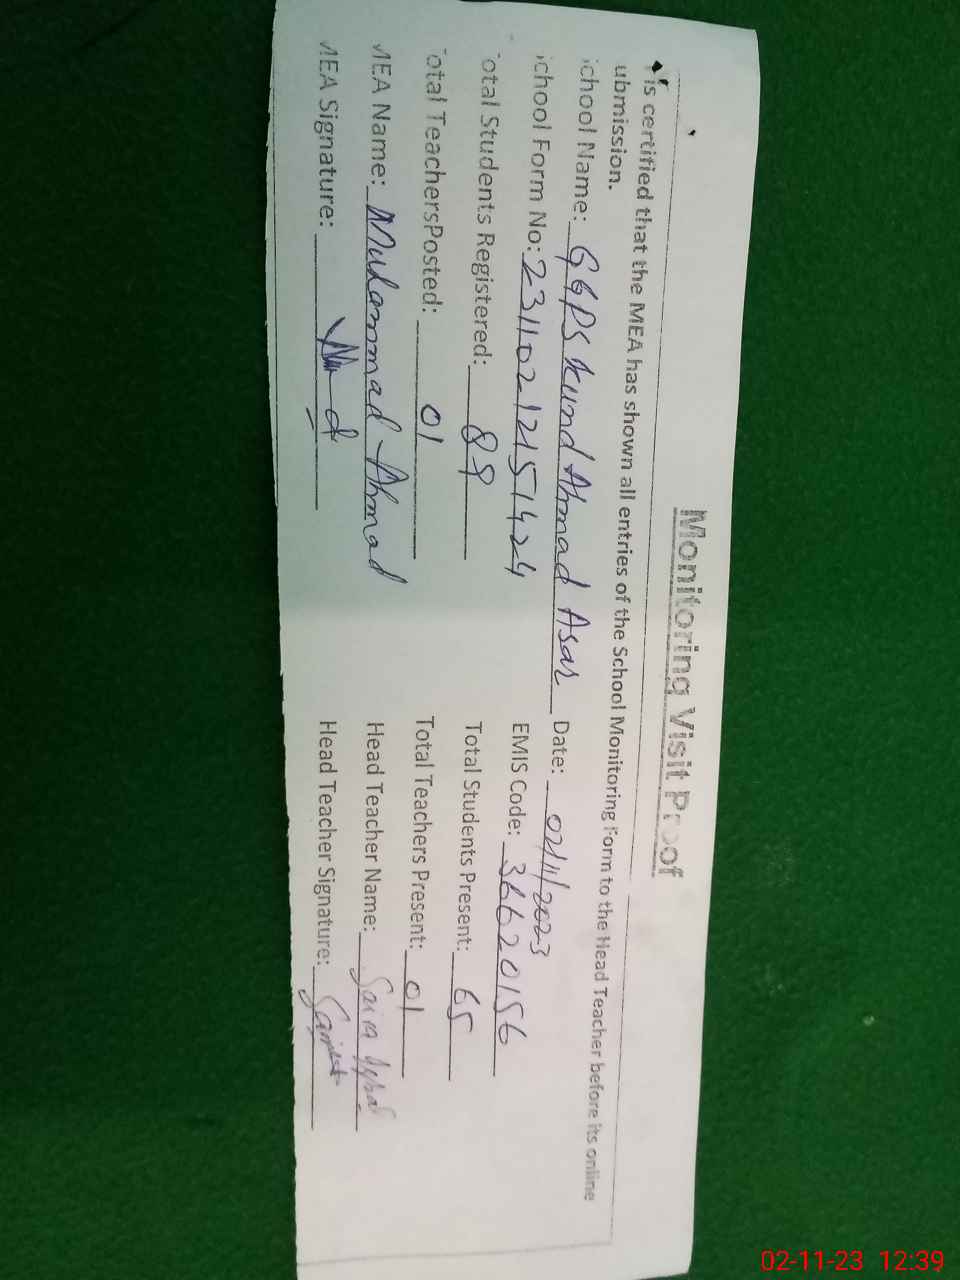 Monitoring Visit Proof
is certified that the MEA has shown all entries of the School Monitoring Form to the Head Teacher before its online
ubmission.
chool Name: GGPS Kund Ahmad Asar Date: 02/11/2023
chool Form No: 23110212151424 EMIS Code: 36620156
otal Students Registered: 89 Total Students Present: 65
otal TeachersPosted: 01 Total Teachers Present: 01
MEA Name: Muhammad Ahmad Head Teacher Name: Saira Iqbal
MEA Signature: Head Teacher Signature:
02-11-23 12:39